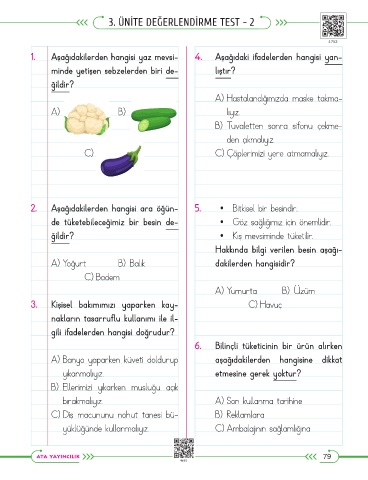 3. ÜNİTE DEĞERLENDİRME TEST - 2
1. Aşağıdakilerden hangisi yaz mevsi-
minde yetişen sebzelerden biri de-
ğildir?
A)
B)
C)
2. Aşağıdakilerden hangisi ara öğün-
de tüketebileceğimiz bir besin de-
ğildir?
A) Yoğurt B) Balık
C) Badem
3. Kişisel bakımımızı yaparken kay-
nakların tasarruflu kullanımı ile il-
gili ifadelerden hangisi doğrudur?
A) Banyo yaparken küveti doldurup
yıkanmalıyız.
B) Ellerimizi yıkarken musluğu açık
bırakmalıyız.
C) Diş macununu nohut tanesi bü-
yüklüğünde kullanmalıyız.
4. Aşağıdaki ifadelerden hangisi yan-
lıştır?
A) Hastalandığımızda maske takma-
lıyız.
B) Tuvaletten sonra sifonu çekme-
den çıkmalıyız.
C) Çöplerimizi yere atmamalıyız.
5. • Bitkisel bir besindir.
• Göz sağlığımız için önemlidir.
• Kış mevsiminde tüketilir.
Hakkında bilgi verilen besin aşağı-
dakilerden hangisidir?
A) Yumurta B) Üzüm
C) Havuç
6. Bilinçli tüketicinin bir ürün alırken
aşağıdakilerden hangisine dikkat
etmesine gerek yoktur?
A) Son kullanma tarihine
B) Reklamlara
C) Ambalajının sağlamlığına
ATA YAYINCILIK
79